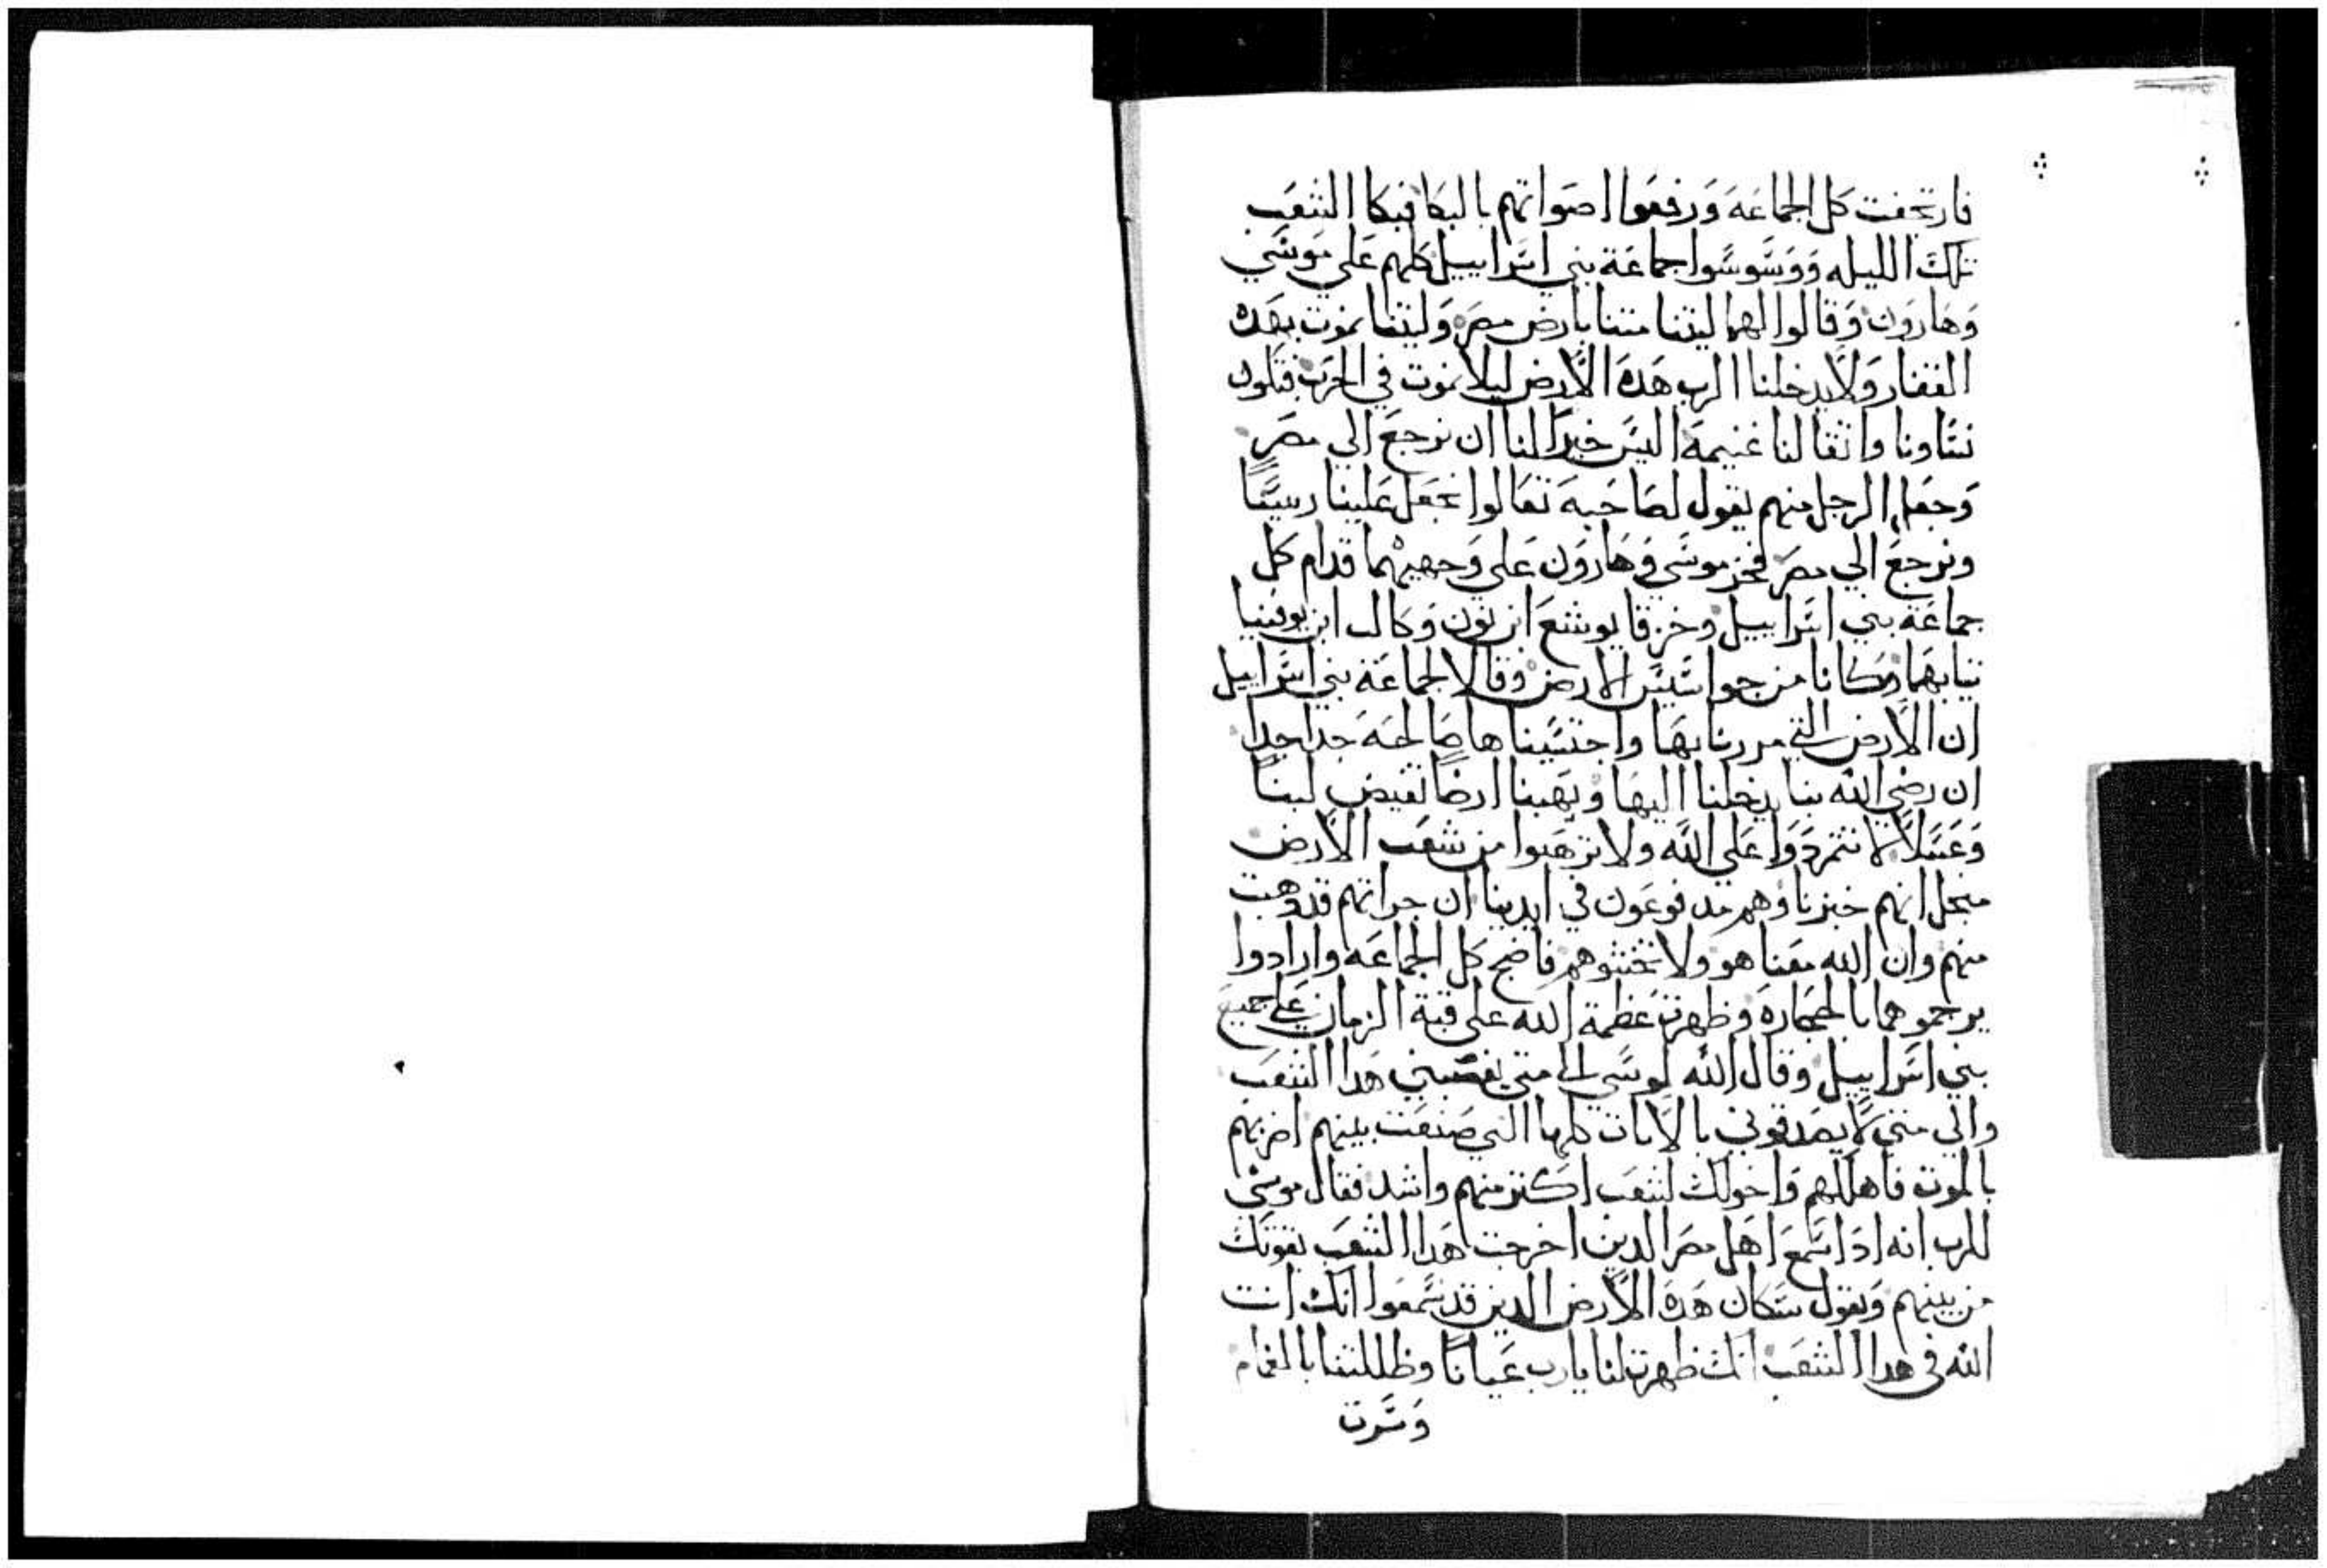 فارتجفت كل الجماعه ورفعوا اصواتهم بالبكا فبكا الشعب
تلك الليله ووسوسوا جماعة بني اسراييل كلهم على موسي
وهارون وقالوا لهما ليتنا متنا بارض مصر وليتنا نموت بهده
القفار ولا يدخلنا الرب هده الارض ليلا نموت في الحرب فتكون
نساونا واثقالنا غنيمة اليس خيرا لنا ان نرجع الي مصر
وجعل الرجل منهم يقول لصاحبه تعالوا نجعل علينا رييسا
ونرجع الي مصر فخر موسي وهارون على وجهيهما قدام كل
جماعة بني اسراييل وخرقا يوشع ابن نون وكالب ابن يوفنيا
تيابهما وكانا من جواسيس الارض وقالا لجماعة بني اسراييل
ان الارض التي مررنا بها واجتسيناها صالحه جدا جدا
ان رضي الله بنا يدخلنا اليها ويهبنا ارضا تفيض لبنا
وعسلا لا تتمردوا على الله ولا ترهبوا من شعب الارض
منجل انهم خبزنا وهم مدفوعون في ايدينا ان جراتهم قد دهبت
منهم وان الله معنا هو ولا تخشوهم فاضج كل الجماعه وارادوا
يرجموهما بالحجاره وظهرت عظمة الله على قبة الزمان على جميع
بني اسراييل وقال الله لموسي الي متي يغضبني هدا الشعب
والي متي لا يصدقوني بالايات كلها التي صنعت بينهم اضربهم
بالموت فاهللهم واخولك لشعب اكتر منهم واشد فقال موسي
للرب انه ادا سمع اهل مصر الدين اخرجت هدا الشعب بقوتك
من بينهم ويقول سكان هده الارض الدين قد سمعوا انك انت
الله في هدا الشعب انك ظهرت لنا يارب عيانا وظللتنا بالغمام
وسرت